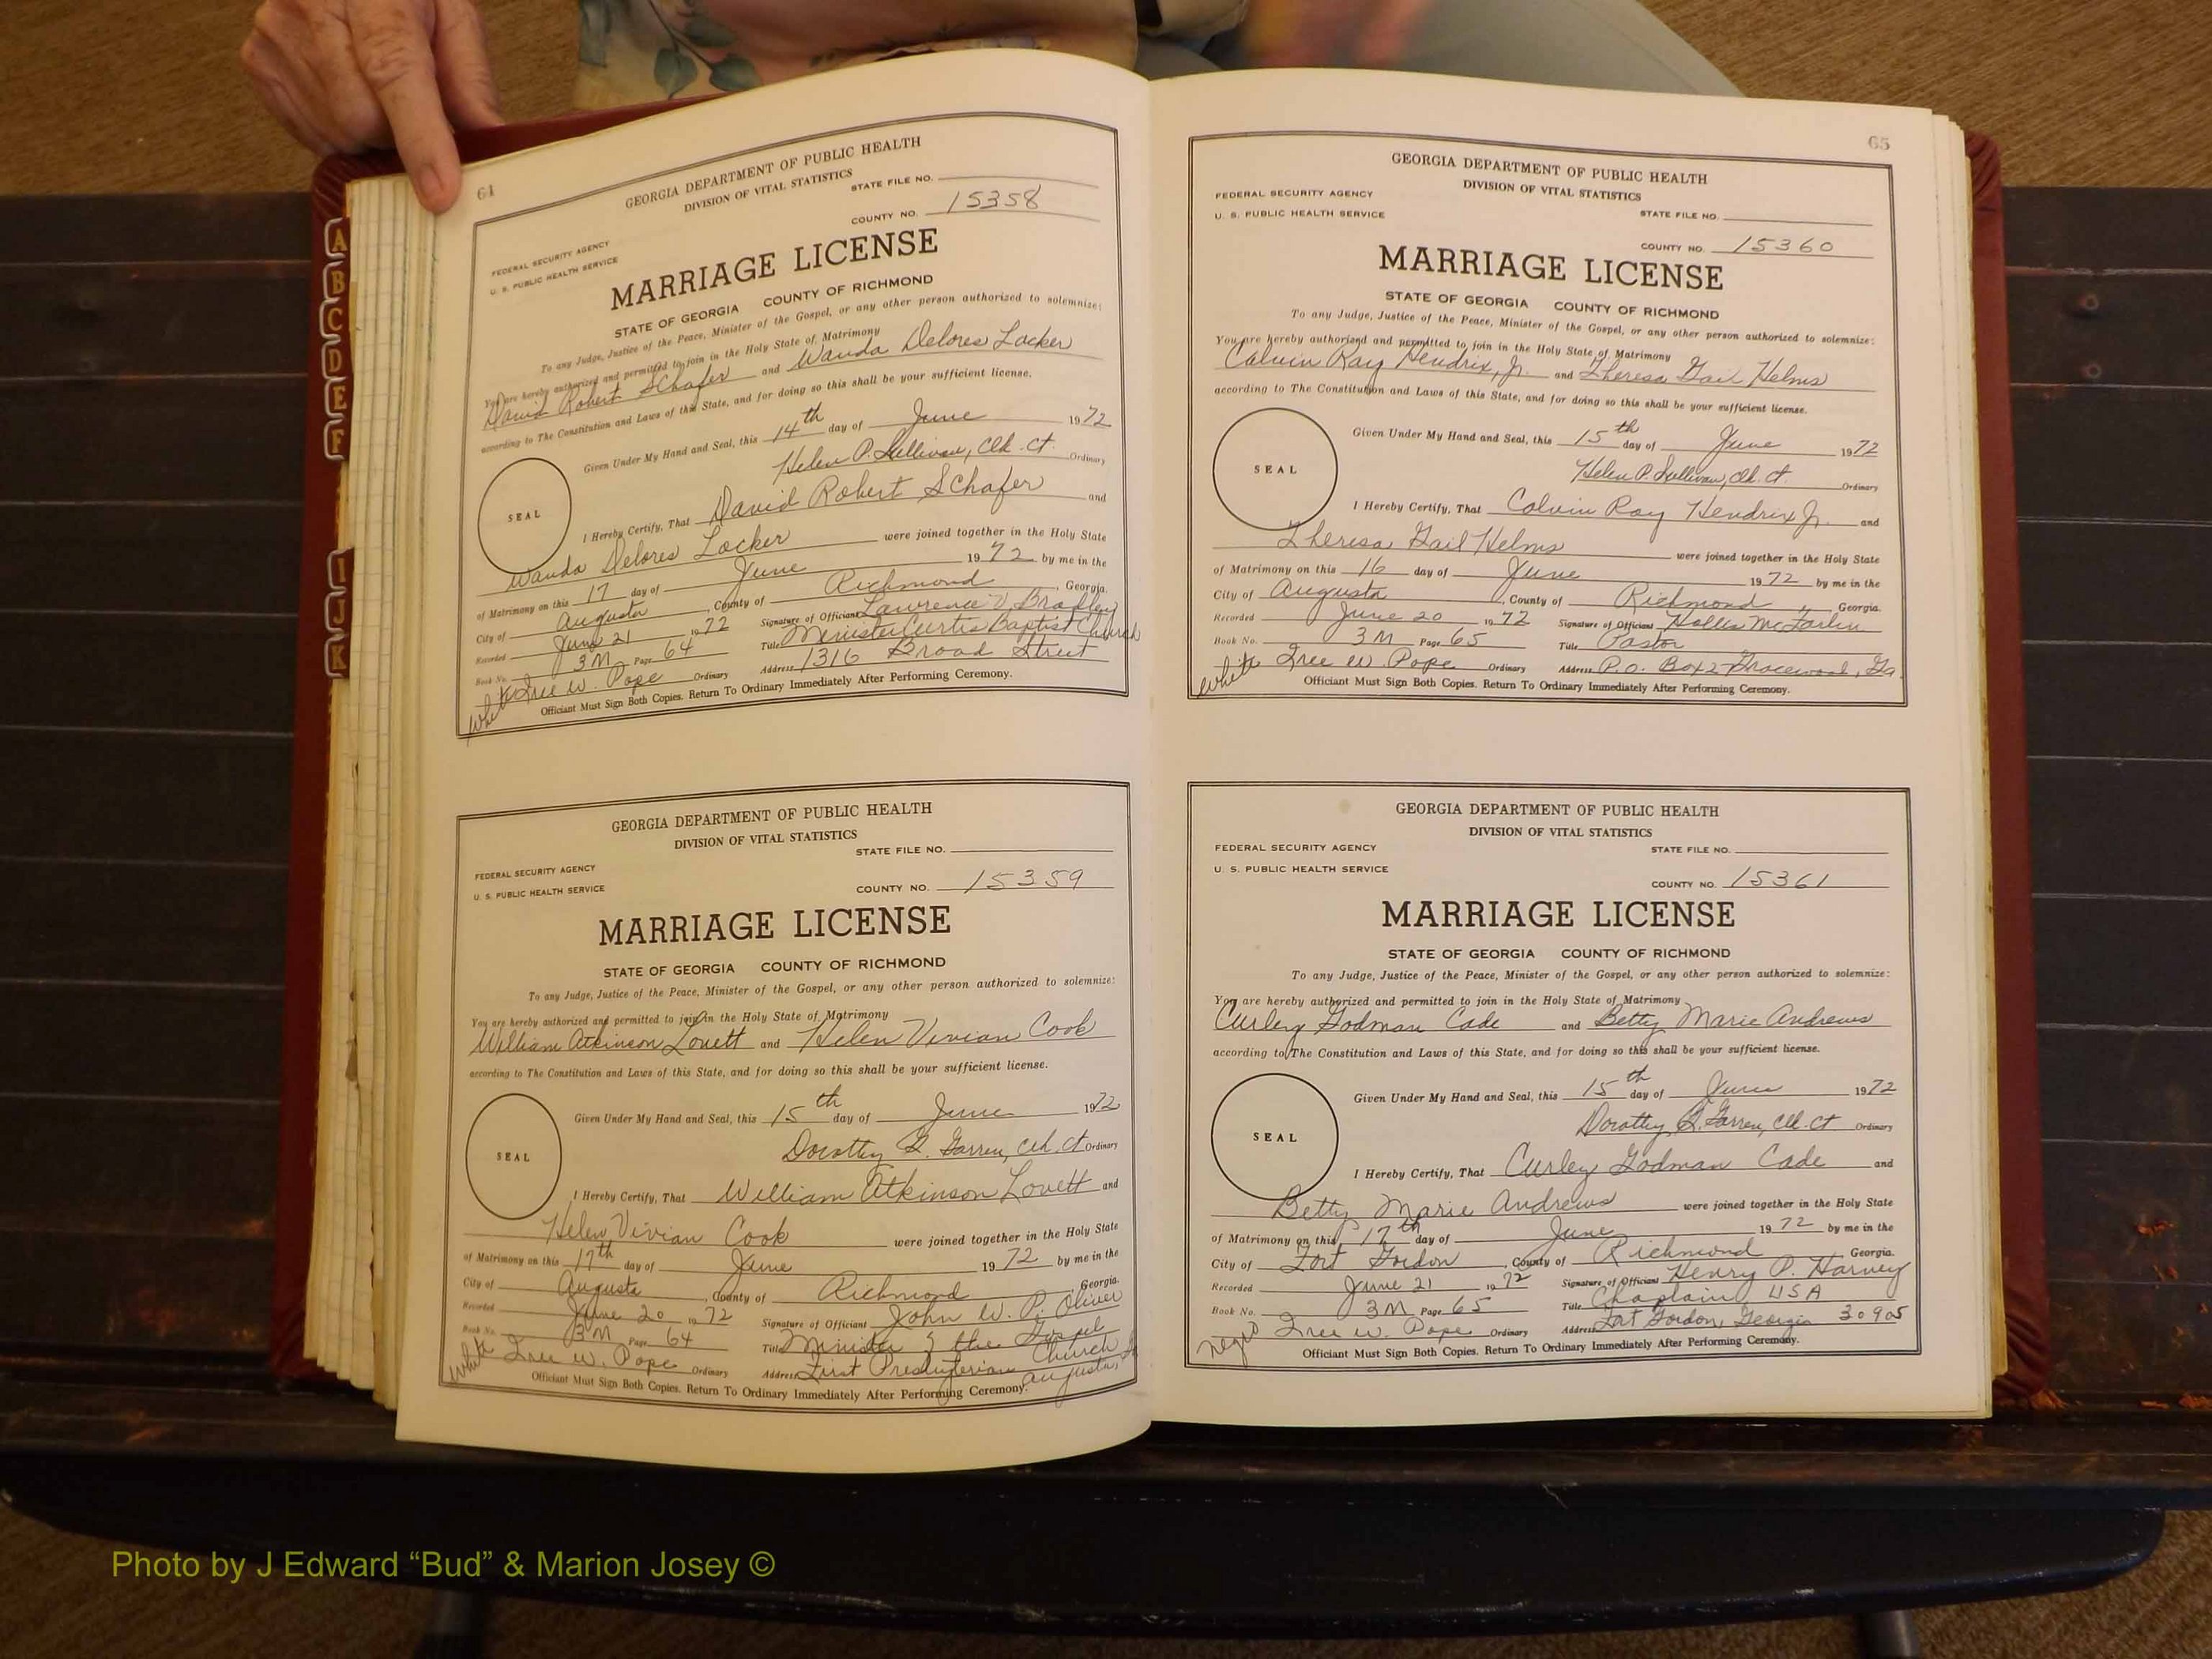 A
B
C
D
E
F
I
J
K
64
GEORGIA DEPARTMENT OF PUBLIC HEALTH
DIVISION OF VITAL STATISTICS
STATE FILE NO.
FEDERAL SECURITY AGENCY
U. S. PUBLIC HEALTH SERVICE
COUNTY NO. 15358
MARRIAGE LICENSE
STATE OF GEORGIA COUNTY OF RICHMOND
To any Judge, Justice of the Peace, Minister of the Gospel, or any other person authorized to solemnize:
You are hereby authorized and permitted to join in the Holy State of Matrimony
David Robert Schafer and Wanda Delores Locker
according to The Constitution and Laws of this State, and for doing so this shall be your sufficient license.
Given Under My Hand and Seal, this 14th day of June 1972
Helen P. Sullivan, Clk. Ct. Ordinary
SEAL
I Hereby Certify, That David Robert Schafer and
Wanda Delores Locker were joined together in the Holy State
of Matrimony on this 17 day of June 1972 by me in the
City of Augusta, County of Richmond, Georgia.
Recorded June 21 1972 Signature of Official Lawrence V. Bradley
Book No. 3M Page 64 Title Minister Curtis Baptist Church
White W. Pope Ordinary Address 1316 Broad Street
Officiant Must Sign Both Copies. Return To Ordinary Immediately After Performing Ceremony.
GEORGIA DEPARTMENT OF PUBLIC HEALTH
DIVISION OF VITAL STATISTICS
STATE FILE NO.
FEDERAL SECURITY AGENCY
U. S. PUBLIC HEALTH SERVICE
COUNTY NO. 15359
MARRIAGE LICENSE
STATE OF GEORGIA COUNTY OF RICHMOND
To any Judge, Justice of the Peace, Minister of the Gospel, or any other person authorized to solemnize:
You are hereby authorized and permitted to join in the Holy State of Matrimony
William Atkinson Lovett and Helen Vivian Cook
according to The Constitution and Laws of this State, and for doing so this shall be your sufficient license.
Given Under My Hand and Seal, this 15th day of June 1972
Dorothy Clk. Ct Ordinary
SEAL
I Hereby Certify, That William Atkinson Lovett and
Helen Vivian Cook were joined together in the Holy State
of Matrimony on this 17th day of June 1972 by me in the
City of Augusta, County of Richmond, Georgia.
Recorded June 20 1972 Signature of Official John W. P. Oliver
Book No. 3M Page 64 Title Minister of the Gospel
White W. Pope Ordinary Address First Presbyterian Church Augusta,
Officiant Must Sign Both Copies. Return To Ordinary Immediately After Performing Ceremony.
65
GEORGIA DEPARTMENT OF PUBLIC HEALTH
FEDERAL SECURITY AGENCY DIVISION OF VITAL STATISTICS
U. S. PUBLIC HEALTH SERVICE STATE FILE NO.
COUNTY NO. 15360
MARRIAGE LICENSE
STATE OF GEORGIA COUNTY OF RICHMOND
To any Judge, Justice of the Peace, Minister of the Gospel, or any other person authorized to solemnize:
You are hereby authorized and permitted to join in the Holy State of Matrimony
Calvin Ray Hendrix, Jr. and Theresa Gail Helms
according to The Constitution and Laws of this State, and for doing so this shall be your sufficient license.
Given Under My Hand and Seal, this 15th day of June 1972
Helen P. Sullivan, Clk. Ct. Ordinary
SEAL
I Hereby Certify, That Calvin Ray Hendrix Jr. and
Theresa Gail Helms were joined together in the Holy State
of Matrimony on this 16 day of June 1972 by me in the
City of Augusta, County of Richmond, Georgia.
Recorded June 20 1972 Signature of Official Hollis
Book No. 3M Page 65 Title Pastor
White W. Pope Ordinary Address P.O. Box 2 Gracewood, Ga.
Officiant Must Sign Both Copies. Return To Ordinary Immediately After Performing Ceremony.
GEORGIA DEPARTMENT OF PUBLIC HEALTH
DIVISION OF VITAL STATISTICS
FEDERAL SECURITY AGENCY STATE FILE NO.
U. S. PUBLIC HEALTH SERVICE
COUNTY NO. 15361
MARRIAGE LICENSE
STATE OF GEORGIA COUNTY OF RICHMOND
To any Judge, Justice of the Peace, Minister of the Gospel, or any other person authorized to solemnize:
You are hereby authorized and permitted to join in the Holy State of Matrimony
Curley Godman Cade and Betty Marie Andrews
according to The Constitution and Laws of this State, and for doing so this shall be your sufficient license.
Given Under My Hand and Seal, this 15th day of June 1972
Dorothy Clk. Ct Ordinary
SEAL
I Hereby Certify, That Curley Godman Cade and
Betty Marie Andrews were joined together in the Holy State
of Matrimony on this 17th day of June 1972 by me in the
City of Fort Gordon, County of Richmond Georgia.
Recorded June 21 1972 Signature of Official Henry P. Harvey
Book No. 3M Page 65 Title Chaplain USA
negro W. Pope Ordinary Address Fort Gordon, Georgia 30905
Officiant Must Sign Both Copies. Return To Ordinary Immediately After Performing Ceremony.
Photo by J Edward “Bud” & Marion Josey ©